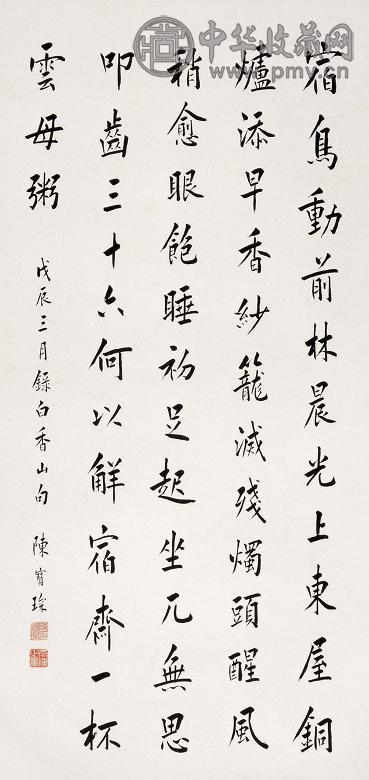 宿鳥動前林晨光上東屋銅
爐添早香紗籠滅殘燭頭醒風
稍愈眼飽睡初足起坐兀無思
叩齒三十六何以解宿齋一杯
雲母粥
戊辰三月錄白香山句 陳寶琛
中华收藏网